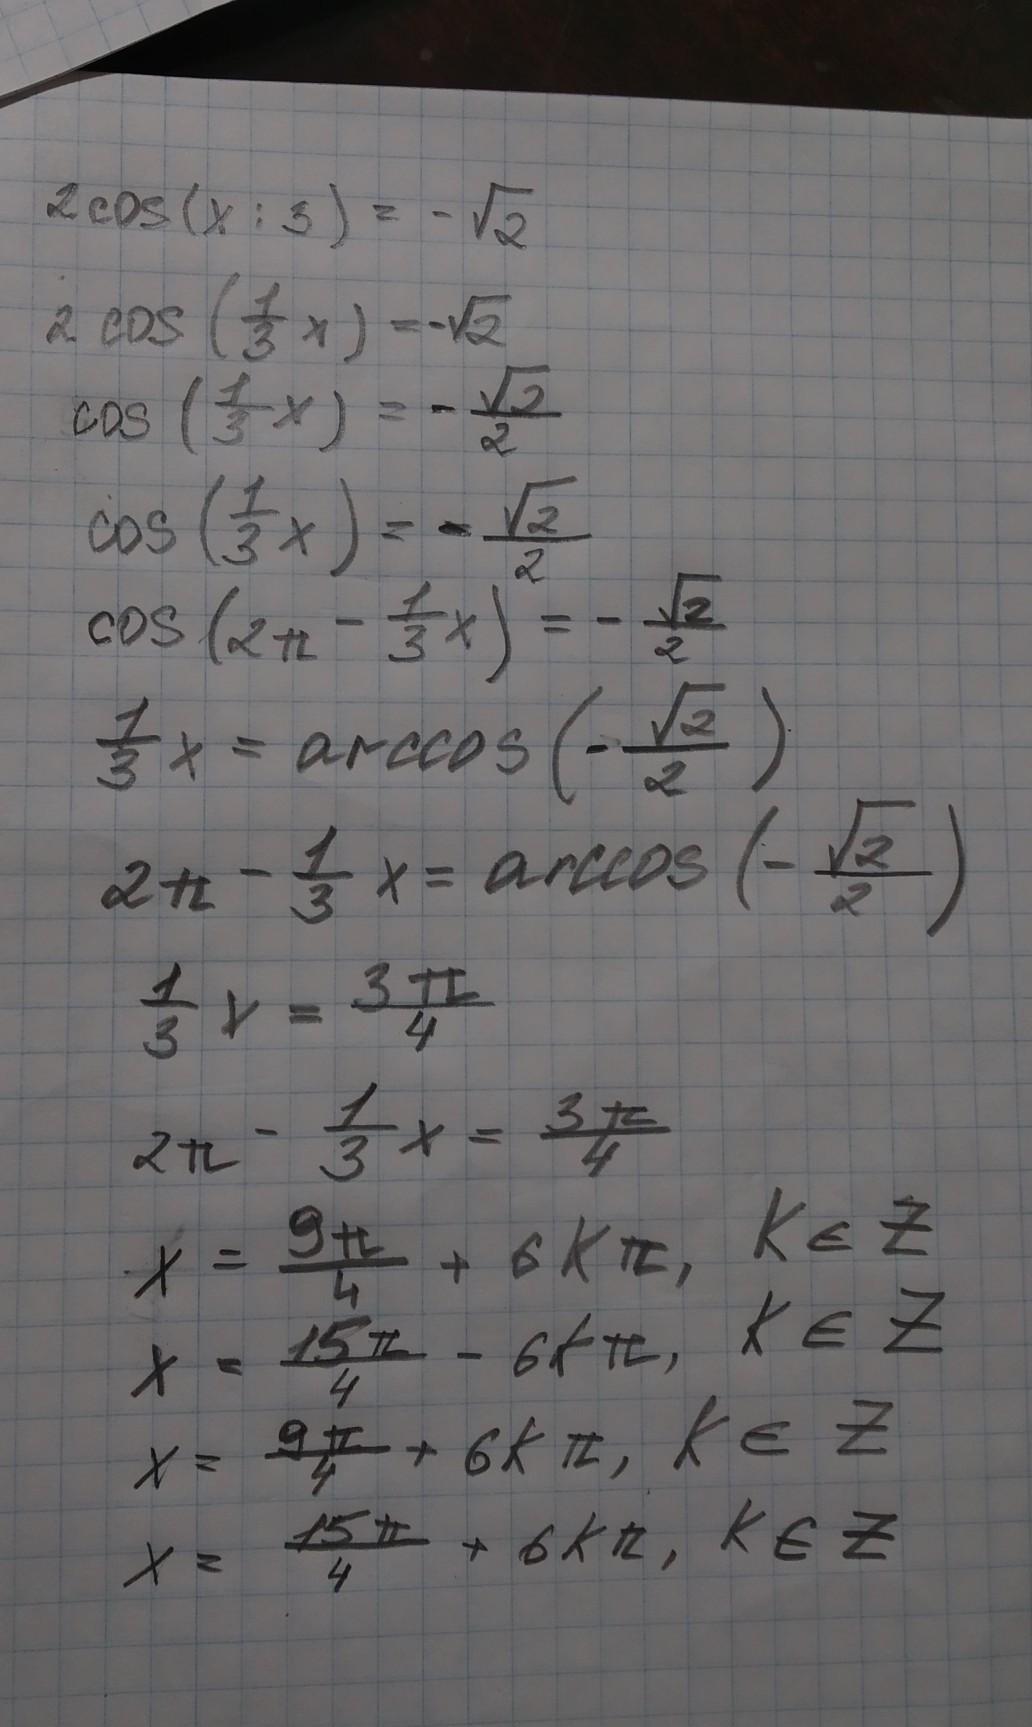 2 cos(x : 3) = -√2
2 cos(1/3 x) = -√2
cos(1/3 x) = -√2/2
cos(1/3 x) = -√2/2
cos(2π - 1/3 x) = -√2/2
1/3 x = arccos(-√2/2)
2π - 1/3 x = arccos(-√2/2)
1/3 x = 3π/4
2π - 1/3 x = 3π/4
x = 9π/4 + 6kπ, k ∈ Z
x = 15π/4 - 6kπ, k ∈ Z
x = 9π/4 + 6kπ, k ∈ Z
x = 15π/4 + 6kπ, k ∈ Z